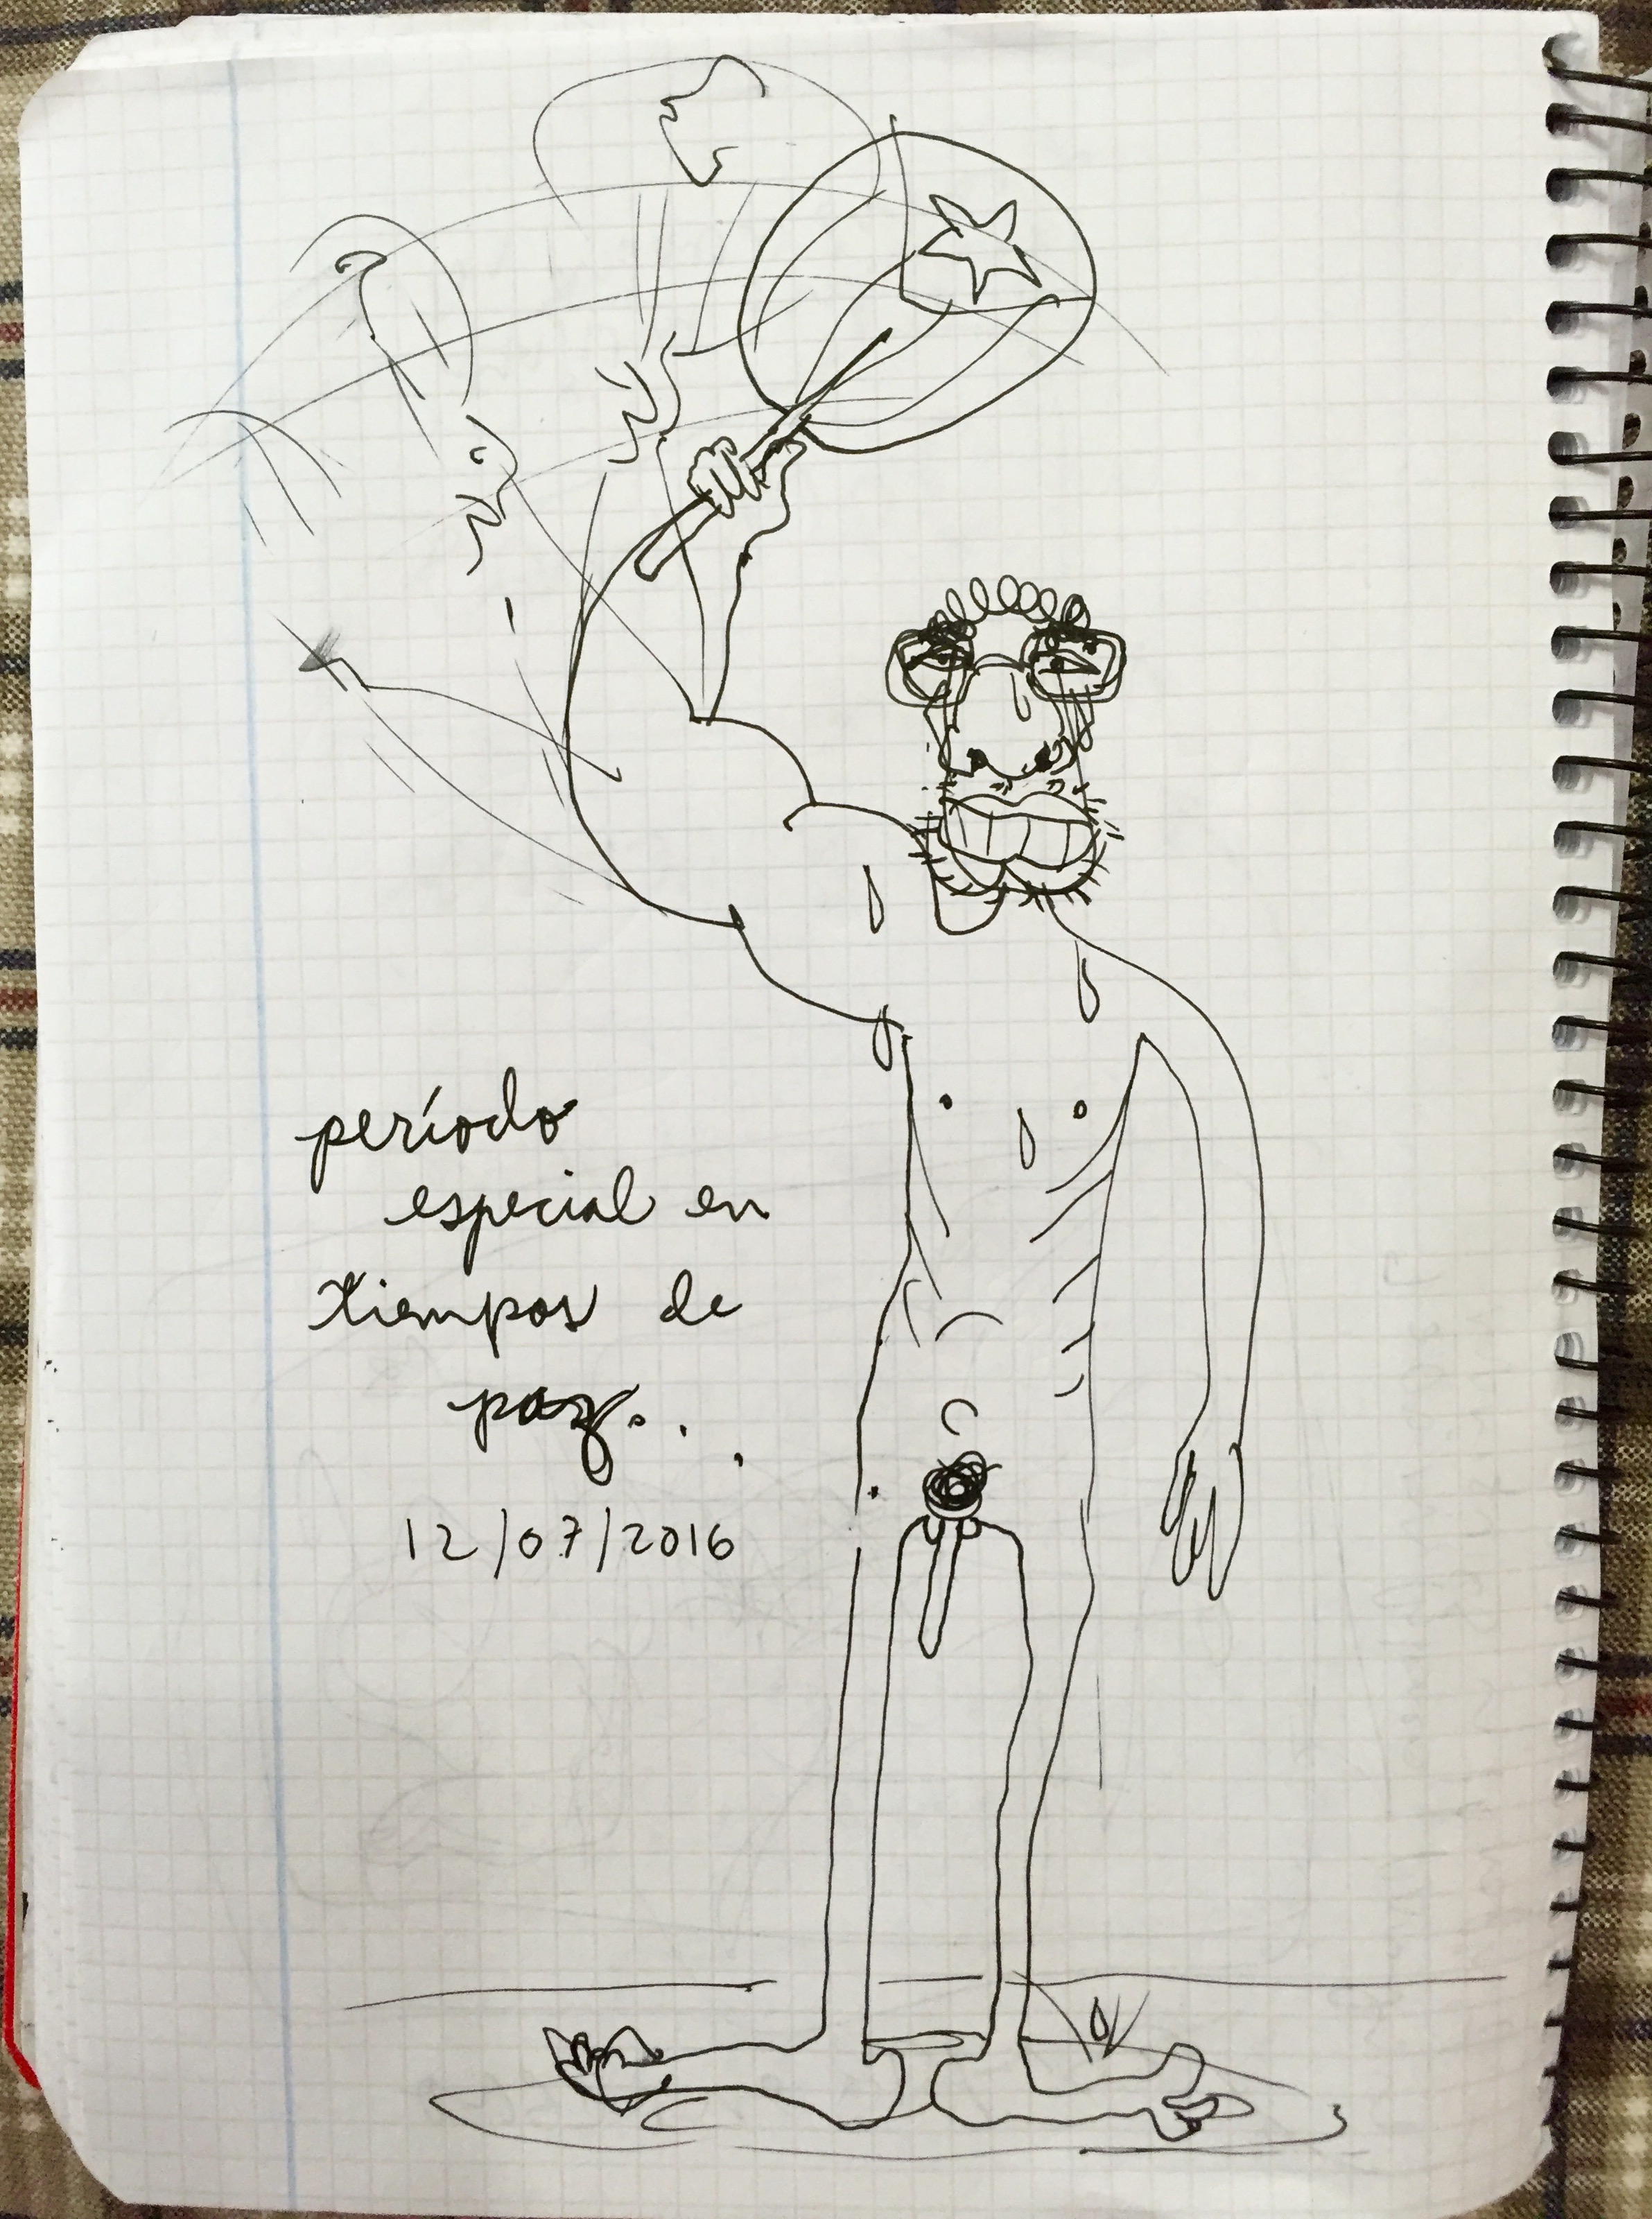 período
especial en
tiempos de
paz...
12/07/2016